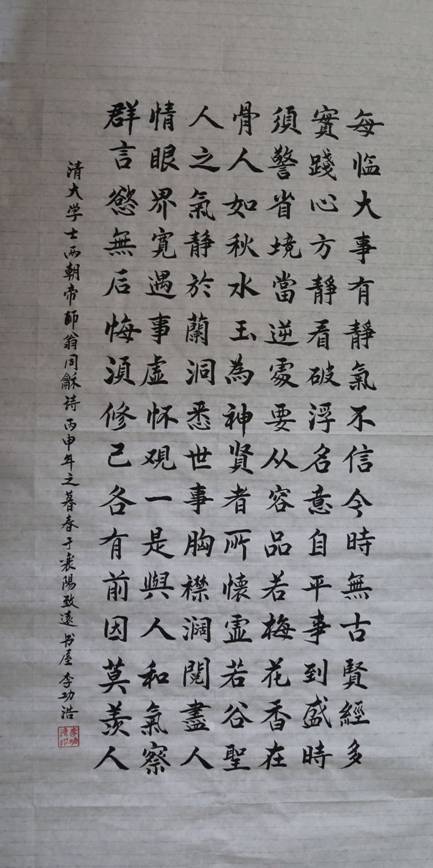 每临大事有靜氣不信今時無古賢經多
實踐心方靜看破浮名意自平事到盛時
須警省境當逆處要从容品若梅花香在
骨人如秋水玉為神賢者所懷虛若谷聖
人之氣靜於蘭洞悉世事胸襟濶閱盡人
情眼界寬遇事虛怀观一是與人和氣察
群言慾無后悔須修己各有前因莫羨人
清大学士两朝帝師翁同龢诗丙申年之暮春于襄陽致遠书屋李功浩